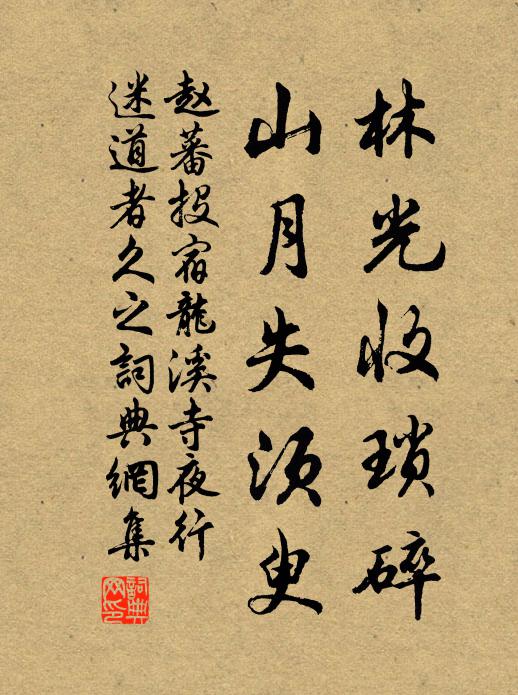 林光收琐碎
山月失须臾
赵蕃投宿龍溪寺夜行
迷道者久之詞典網集
詞典
网印